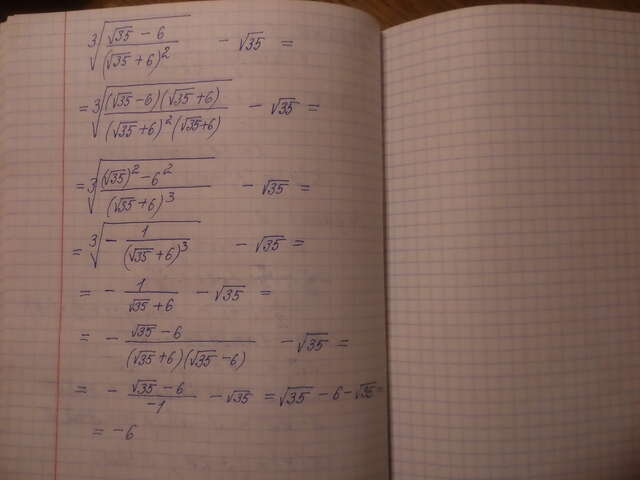 ∛((√35 − 6)/(√35 + 6)²) − √35 =
= ∛((√35 − 6)(√35 + 6)/((√35 + 6)²(√35 + 6))) − √35 =
= ∛(((√35)² − 6²)/(√35 + 6)³) − √35 =
= ∛(− 1/(√35 + 6)³) − √35 =
= − 1/(√35 + 6) − √35 =
= − (√35 − 6)/((√35 + 6)(√35 − 6)) − √35 =
= − (√35 − 6)/(−1) − √35 = √35 − 6 − √35 =
= −6